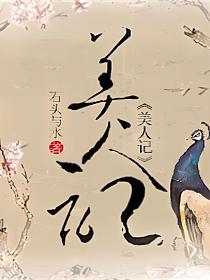 美人记
《美人记》
石头与水 著